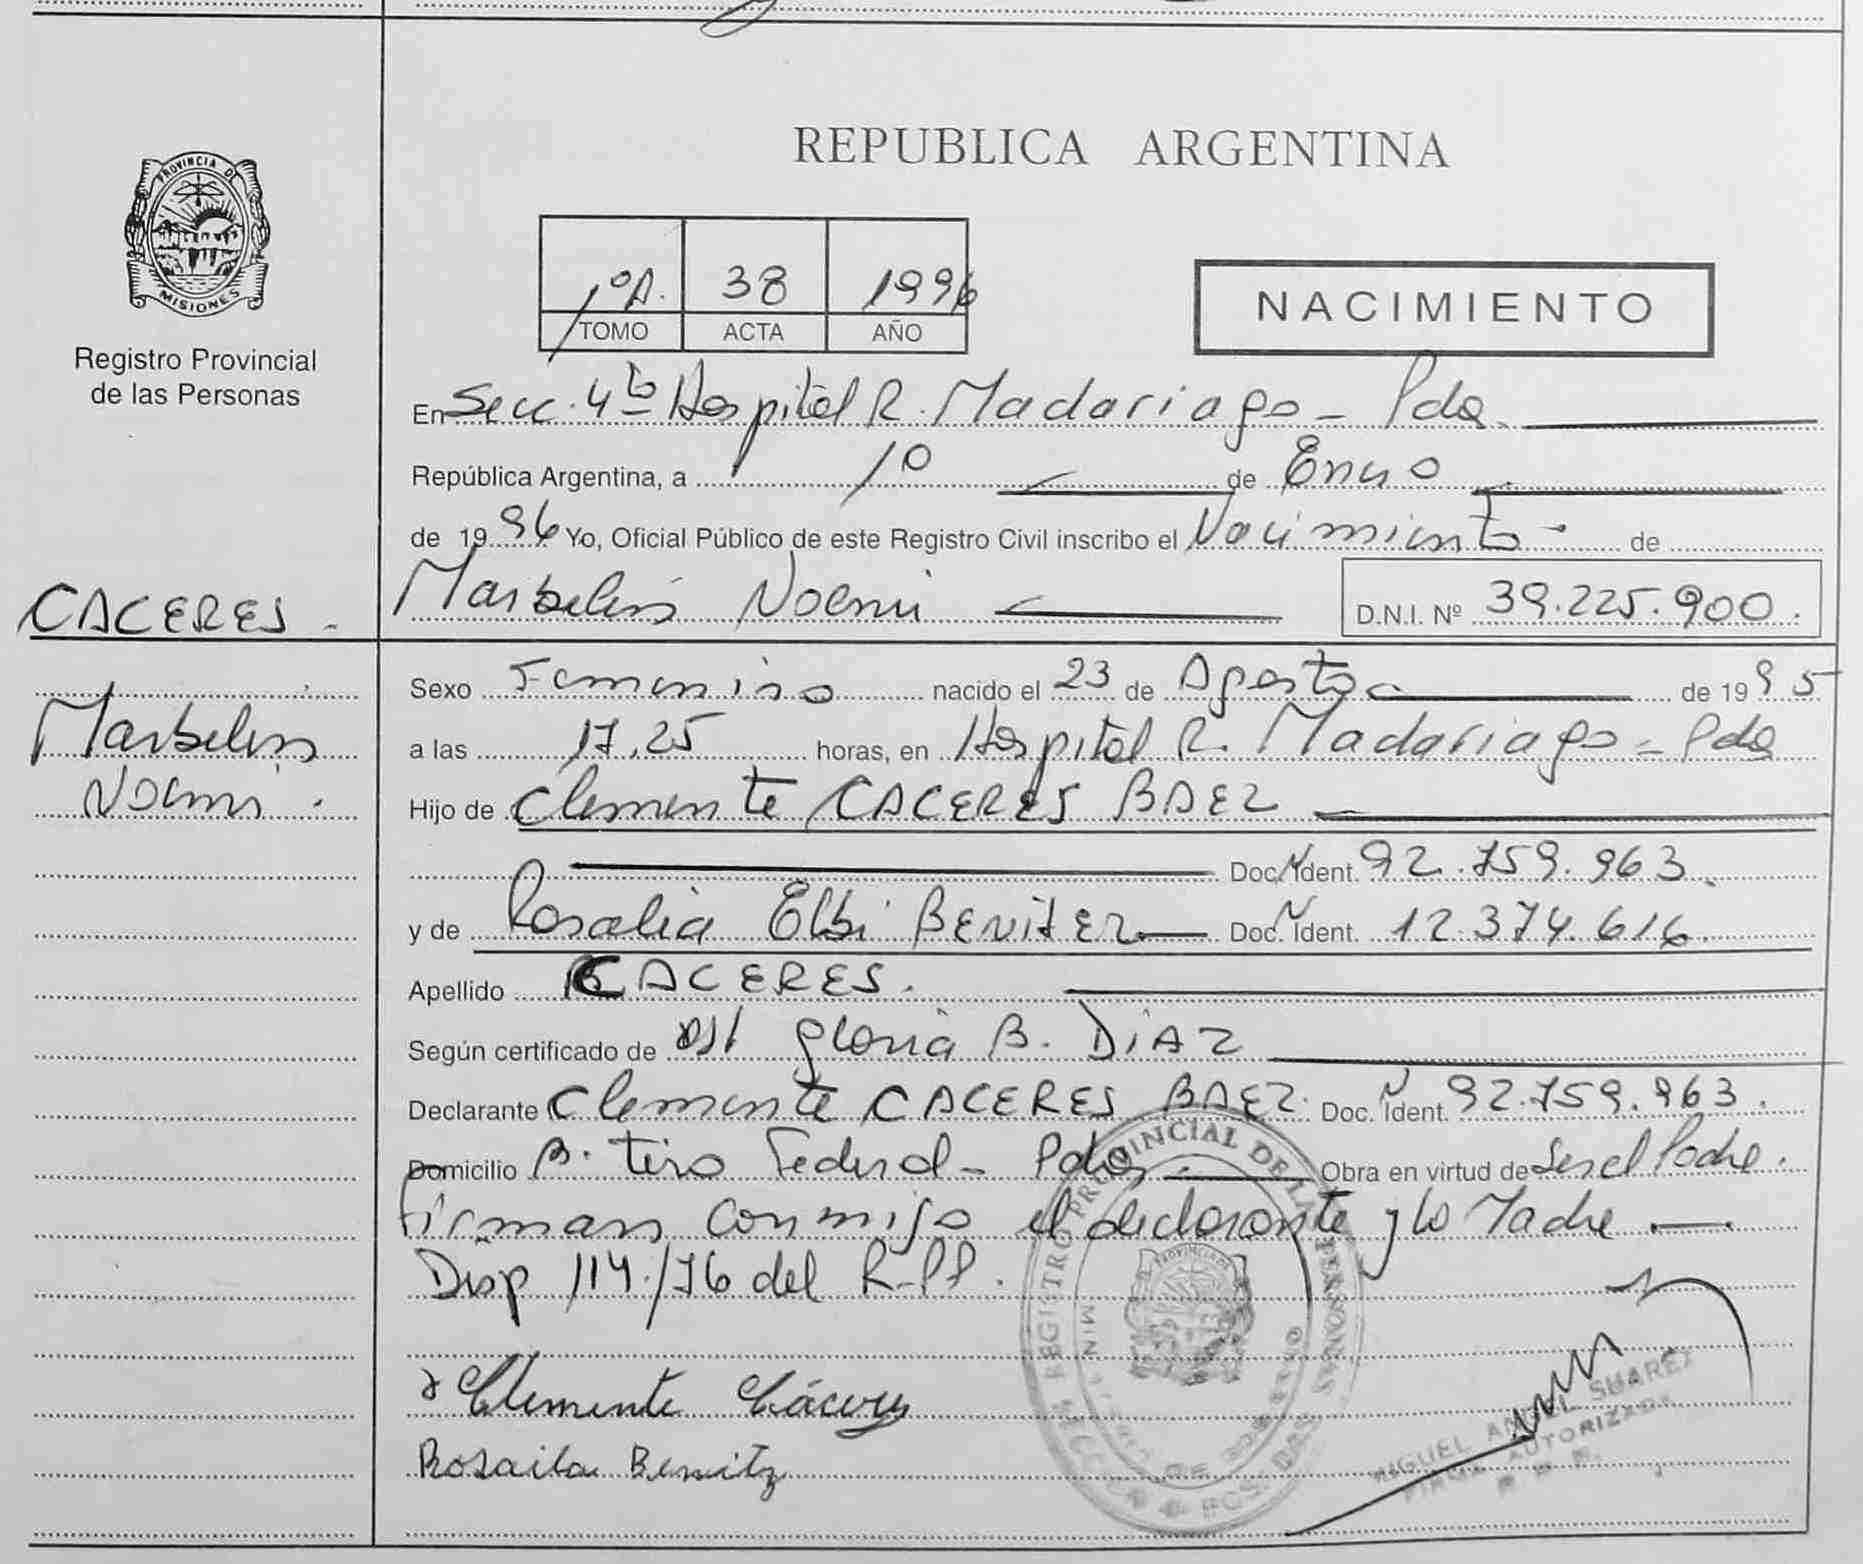 PROVINCIA DE
MISIONES
Registro Provincial
de las Personas
CACERES.
Marbelis
Noemi.
REPUBLICA ARGENTINA
1ºA. 38 1996
TOMO ACTA AÑO
NACIMIENTO
En Secc. 4ta Hospital R. Madariaga - Pdas.
República Argentina, a 10 de Enero
de 1996 Yo, Oficial Público de este Registro Civil inscribo el Nacimiento de
Marbelis Noemi D.N.I. Nº 39.225.900.
Sexo Femenino nacido el 23 de Agosto de 1995
a las 17,25 horas, en Hospital R. Madariaga - Pdas
Hijo de Clemente CACERES BAEZ
Doc. Ident. 92.759.963.
y de Rosalia Elbi BENITEZ Doc. Ident. 12.374.616.
Apellido CACERES.
Según certificado de Gloria B. DIAZ
Declarante Clemente CACERES BAEZ. Doc. Ident. 92.759.963.
Domicilio B. Tiro Federal - Pdas. Obra en virtud de Ser el Padre.
Firman conmigo el declarante y la Madre
Disp 114/76 del R.P.P.
Clemente Cáceres
Rosaila Benitz
REGISTRO PROVINCIAL DE LAS PERSONAS
MIGUEL ANGEL SUAREZ
FIRMA AUTORIZADA